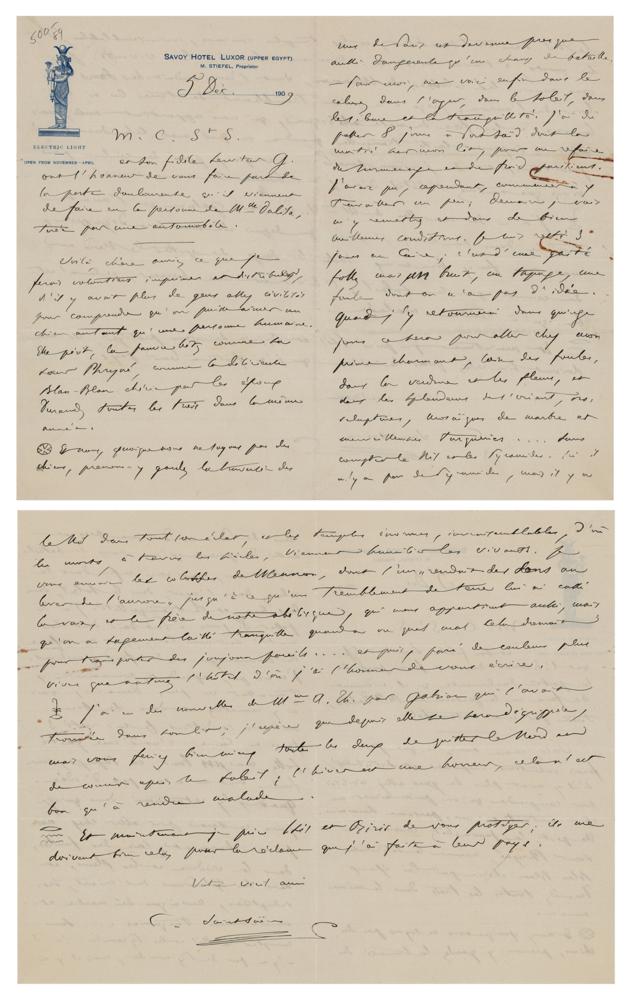 500- 89
SAVOY HOTEL LUXOR (UPPER EGYPT)
M. STIEFEL, Proprietor
5 Déc. 1909
ELECTRIC LIGHT
OPEN FROM NOVEMBER - APRIL
M. C. St S.
et son fidèle serviteur G.
ont l'honneur de vous faire part de
la perte douloureuse qu'ils viennent
de faire en la personne de Mlle Dalila,
tuée par une automobile.
Voilà, chère amie, ce que je
ferais volontiers imprimer et distribuer,
s'il y avait plus de gens assez civilisés
pour comprendre qu'on puisse aimer un
chien autant qu'une personne humaine.
Elle périt, la pauvre bête, comme sa
sœur Phryné, comme la délicieuse
Blan-Blan chérie par les époux
Durand, toutes les trois dans la même
année.
Et nous, quoique nous ne soyons pas des
chiens, prenons-y garde, la traversée des
rues de Paris est devenue presque
aussi dangereuse qu'un champ de bataille.
— Pour moi, me voici enfin dans le
calme, dans l'azur, dans le soleil, dans
le silence et la tranquillité. J'ai dû
passer 8 jours à Port Saïd dont la
moitié dans mon lit, pour me refaire
du surmenage et du froid parisiens.
J'avais pu, cependant, commencer à y
travailler un peu; demain, je vais
m'y remettre et dans de bien
meilleures conditions. Je suis resté 3
jours au Caire; c'est d'une gaîté
folle mais un bruit, un tapage, une
foule dont on n'a pas d'idée.
Quand j'y retournerai dans quinze
jours ce sera pour aller chez mon
prince charmant, loin des foules,
dans la verdure et les fleurs, et
dans les splendeurs de l'Orient,
sculptures, mosaïques de marbre et
merveilleuses turqueries .... sans
compter le Nil et les Pyramides. Ici il
n'y a pas de Pyramides, mais il y a
le Nil dans tout son éclat, et les temples énormes, invraisemblables, d'où
les morts, à travers les siècles, viennent humilier les vivants. Je
vous envoie les colosses de Memnon, dont l'un rendait des sons au
lever de l'aurore, jusqu'à ce qu'un tremblement de terre lui ait cassé
la voix, et le frère de notre obélisque, qui nous appartient aussi, mais
qu'on a sagement laissé tranquille quand on
pour transporter des joujoux pareils .... et puis, paré de couleurs plus
vives que nature, l'hôtel d'où j'ai l'honneur de vous écrire.
J'ai eu des nouvelles de Mme A. Th. par Gabriel qui l'avait
trouvée dans son lit; j'espère que depuis elle se sera dégrippée,
mais vous feriez bien mieux toutes les deux de quitter le Nord and
de courir après le soleil; l'hiver est une horreur, cela n'est
bon qu'à rendre malade.
Et maintenant je prie Isis et Osiris de vous protéger; ils me
doivent bien cela, pour la réclame que j'ai faite à leur pays.
Votre vieil ami
C. Saint-Saëns